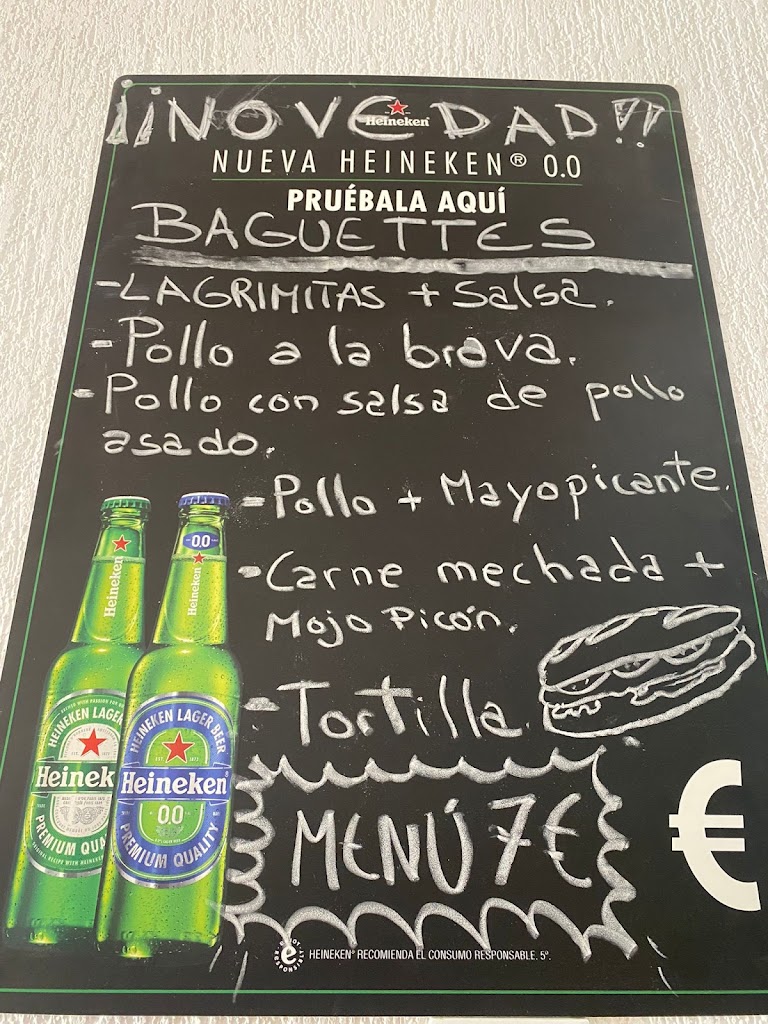 ¡¡NOVEDAD!!
Heineken
NUEVA HEINEKEN® 0.0
PRUÉBALA AQUÍ
BAGUETTES
-LAGRIMITAS + Salsa.
-Pollo a la brava.
-Pollo con salsa de pollo
asado.
-Pollo + Mayopicante.
-Carne mechada +
Mojo Picón.
-Tortilla.
MENÚ 7€
€
0.0
Heineken
Heineken
HEINEKEN LAGER
Heinek
PREMIUM QUA
HEINEKEN LAGER BEER
Heineken®
0.0
PREMIUM QUALITY
ENJOY RESPONSIBLY
HEINEKEN® RECOMIENDA EL CONSUMO RESPONSABLE. 5º.